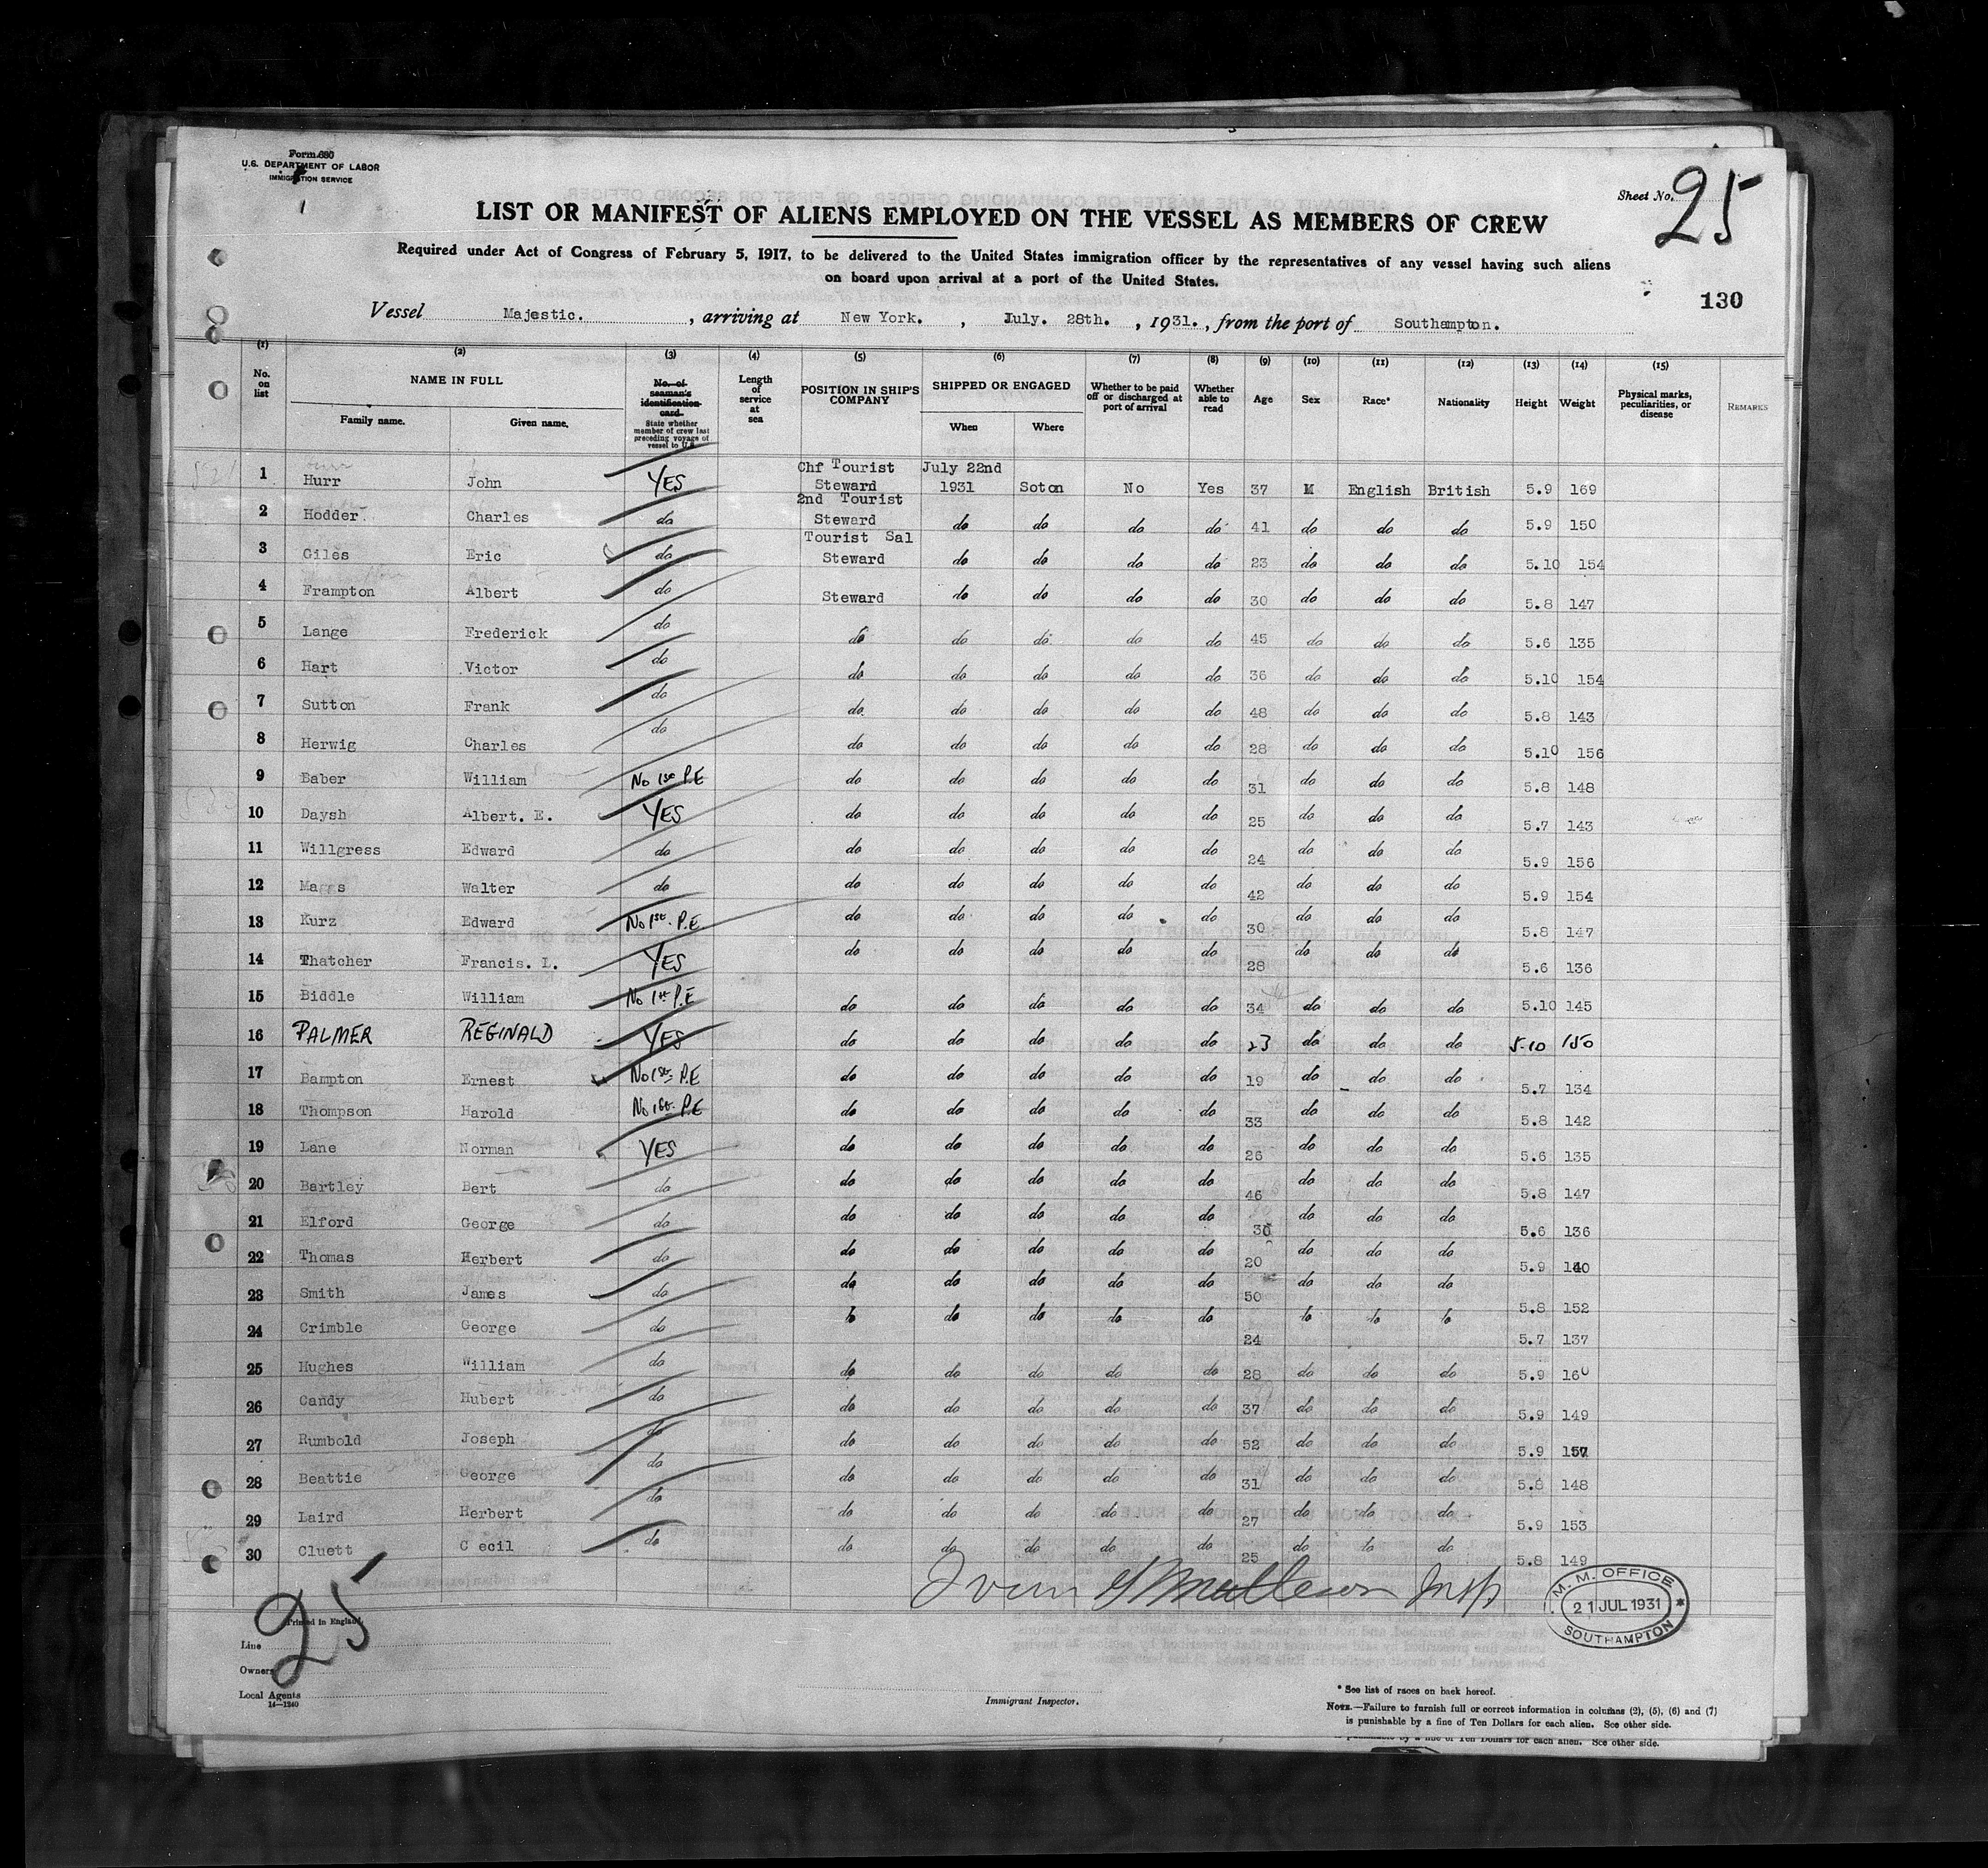 Form 680
U.S. DEPARTMENT OF LABOR
IMMIGRATION SERVICE
Sheet No. 25
LIST OR MANIFEST OF ALIENS EMPLOYED ON THE VESSEL AS MEMBERS OF CREW
Required under Act of Congress of February 5, 1917, to be delivered to the United States immigration officer by the representatives of any vessel having such aliens
on board upon arrival at a port of the United States.
130
Vessel Majestic. , arriving at New York. , July. 28th. , 1931. , from the port of Southampton.
(1) (2) (3) (4) (5) (6) (7) (8) (9) (10) (11) (12) (13) (14) (15)
No. on list NAME IN FULL Family name. Given name. No. of seaman's identification card. State whether member of crew last preceding voyage of vessel to U.S. Length of service at sea POSITION IN SHIP'S COMPANY SHIPPED OR ENGAGED When Where Whether to be paid off or discharged at port of arrival Whether able to read Age Sex Race* Nationality Height Weight Physical marks, peculiarities, or disease REMARKS
1 Hurr John YES Chf Tourist Steward July 22nd 1931 Soton No Yes 37 M English British 5.9 169
2 Hodder Charles do 2nd Tourist Steward do do do do 41 do do do 5.9 150
3 Giles Eric do Tourist Sal Steward do do do do 23 do do do 5.10 154
4 Frampton Albert do Steward do do do do 30 do do do 5.8 147
5 Lange Frederick do do do do do do 45 do do do 5.6 135
6 Hart Victor do do do do do do 36 do do do 5.10 154
7 Sutton Frank do do do do do do 48 do do do 5.8 143
8 Herwig Charles do do do do do do 28 do do do 5.10 156
9 Baber William No 1st P.E do do do do do 31 do do do 5.8 148
10 Daysh Albert. E. YES do do do do do 25 do do do 5.7 143
11 Willgress Edward do do do do do do 24 do do do 5.9 156
12 Maggs Walter do do do do do do 42 do do do 5.9 154
13 Kurz Edward No 1st. P.E do do do do do 30 do do do 5.8 147
14 Thatcher Francis. L. YES do do do do do 28 do do do 5.6 136
15 Biddle William No 1st P.E do do do do do 34 do do do 5.10 145
16 PALMER REGINALD YES do do do do do 23 do do do 5-10 150
17 Bampton Ernest No 1st P.E do do do do do 19 do do do 5.7 134
18 Thompson Harold No 1st. P.E do do do do do 33 do do do 5.8 142
19 Lane Norman YES do do do do do 26 do do do 5.6 135
20 Bartley Bert do do do do do do 46 do do do 5.8 147
21 Elford George do do do do do do 30 do do do 5.6 136
22 Thomas Herbert do do do do do do 20 do do do 5.9 140
23 Smith James do do do do do do 50 do do do 5.8 152
24 Crimble George do do do do do do 24 do do do 5.7 137
25 Hughes William do do do do do do 28 do do do 5.9 160
26 Candy Hubert do do do do do do 37 do do do 5.9 149
27 Rumbold Joseph do do do do do do 52 do do do 5.9
28 Beattie George do do do do do do 31 do do do 5.8 148
29 Laird Herbert do do do do do do 27 do do do 5.9 153
30 Cluett Cecil do do do do do do 25 do do do 5.8 149
M. M. OFFICE
21 JUL 1931
SOUTHAMPTON
25
Printed in England.
Line
Owners
Local Agents
14—1240
Immigrant Inspector.
* See list of races on back hereof.
NOTE.—Failure to furnish full or correct information in columns (2), (5), (6) and (7)
is punishable by a fine of Ten Dollars for each alien. See other side.
is punishable by a fine of Ten Dollars for each alien. See other side.